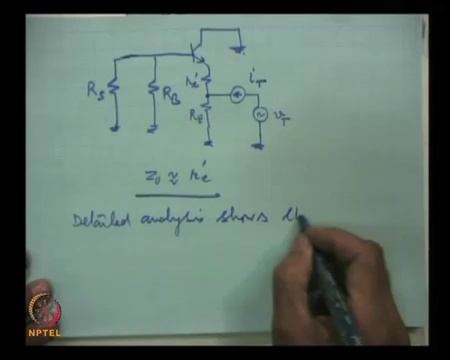 r'e iT
RS RB RE vT
z0 ≈ r'e
Detailed analysis shows th
NPTEL